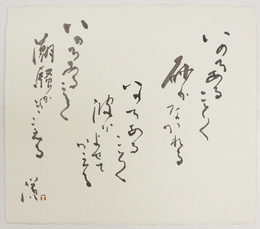 いのちあるごとく
砂がながれる
いのちあるごとく
波がよせて
かえる
いのちあるごとく
潮騒がきこえる